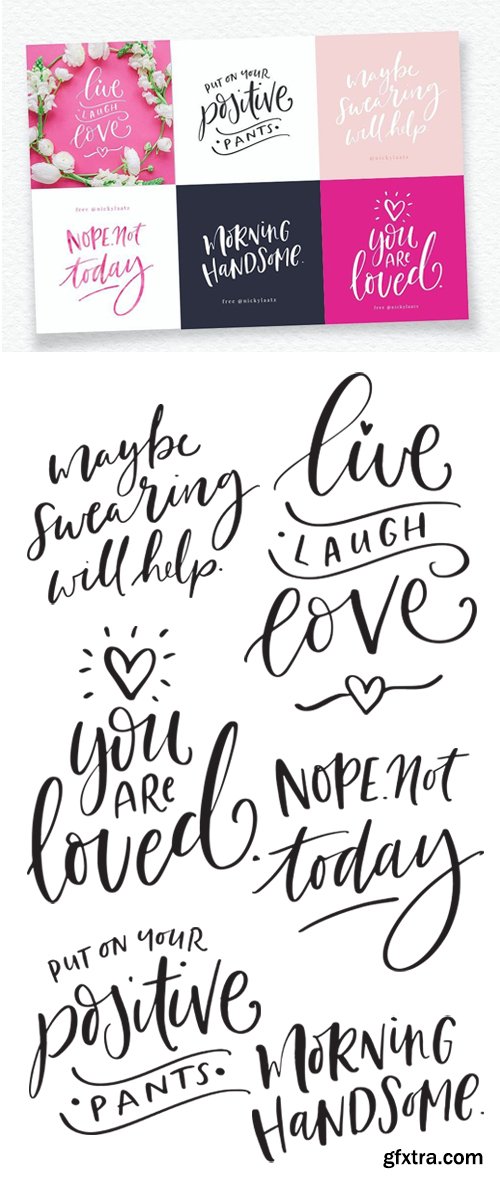 live
LAUGH
love
PUT ON YOUR
positive
PANTS
maybe
swearing
will help
@nickylaatz
free @nickylaatz
NOPE. Not
today
MORNING
HANDSOME.
free @nickylaatz
you
ARE
loved.
free @nickylaatz
maybe
swearing
will help.
live
LAUGH
love
you
ARE
loved.
NOPE. Not
today
PUT ON YOUR
positive
PANTS
MORNING
HANDSOME.
gfxtra.com